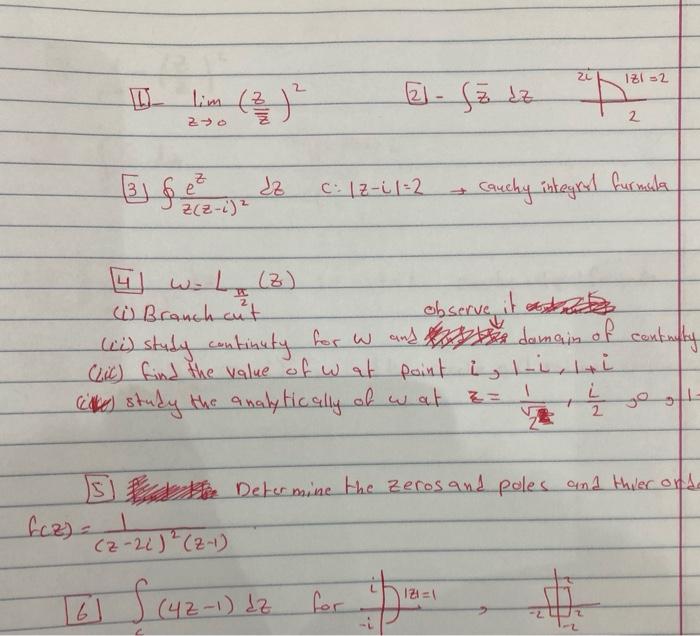 1- lim z→0 (z/z̄)² 2- ∫ z̄ dz 2i |z|=2 2
3 ∮ e^z / z(z-i)² dz c: |z-i|=2 → cauchy integral furmula
4 w = L_{π/2} (z)
(i) Branch cut observe it
(ii) study continuty for w and domain of contnuty
(iii) find the value of w at point i, 1-i, 1+i
study the analytically of w at z = 1/√2, i/2, 0, 1-
5 Determine the zeros and poles and thier orde
f(z) = 1 / (z-2i)² (z-1)
6 ∫_c (4z-1) dz for i -i |z|=1 , 2 -2 2 -2